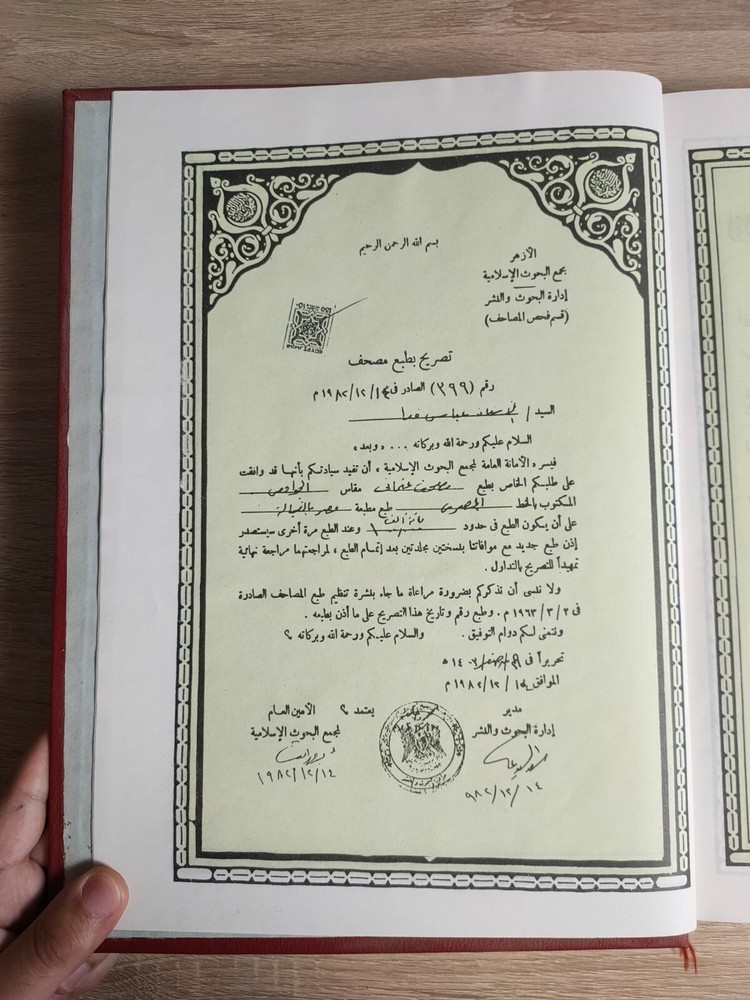 بسم الله الرحمن الرحيم
الأزهر
مجمع البحوث الإسلامية
إدارة البحوث والنشر
(قسم فحص المصاحف)
تصريح بطبع مصحف
رقم (٣٩٩) الصادر في ١٤/١٢/١٩٨٢ م
السيد /
السلام عليكم ورحمة الله وبركاته ... « وبعد »
فيسر « الأمانة العامة لمجمع البحوث الإسلامية » أن تفيد سيادتكم بأنها قد وافقت
على طلبكم الخاص بطبع مصحف عثماني مقاس الجوامعي
المكتوب بالخط طبع مطبعة مصر بالفجالة
على أن يكون الطبع في حدود مائة ألف وعند الطبع مرة أخرى سيستصدر
إذن طبع جديد مع موافاتنا بنسختين مجلدتين بعد إتمام الطبع ، لمراجعتهما مراجعة نهائية
تمهيداً للتصريح بالتداول .
ولا ننسى أن نذكركم بضرورة مراعاة ما جاء بنشرة تنظيم طبع المصاحف الصادرة
في ٢ / ٣ / ١٩٦٣ م . وطبع رقم وتاريخ هذا التصريح على ما أذن بطبعه .
ونتمنى لكم دوام التوفيق . والسلام عليكم ورحمة الله وبركاته ؟
تحريراً في
الموافق ١٤/١٢/١٩٨٢ م
مدير
إدارة البحوث والنشر
٩٨٢/١٢/١٤
يعتمد ؟
الأمين العام
لمجمع البحوث الإسلامية
١٩٨٢/١٢/١٤